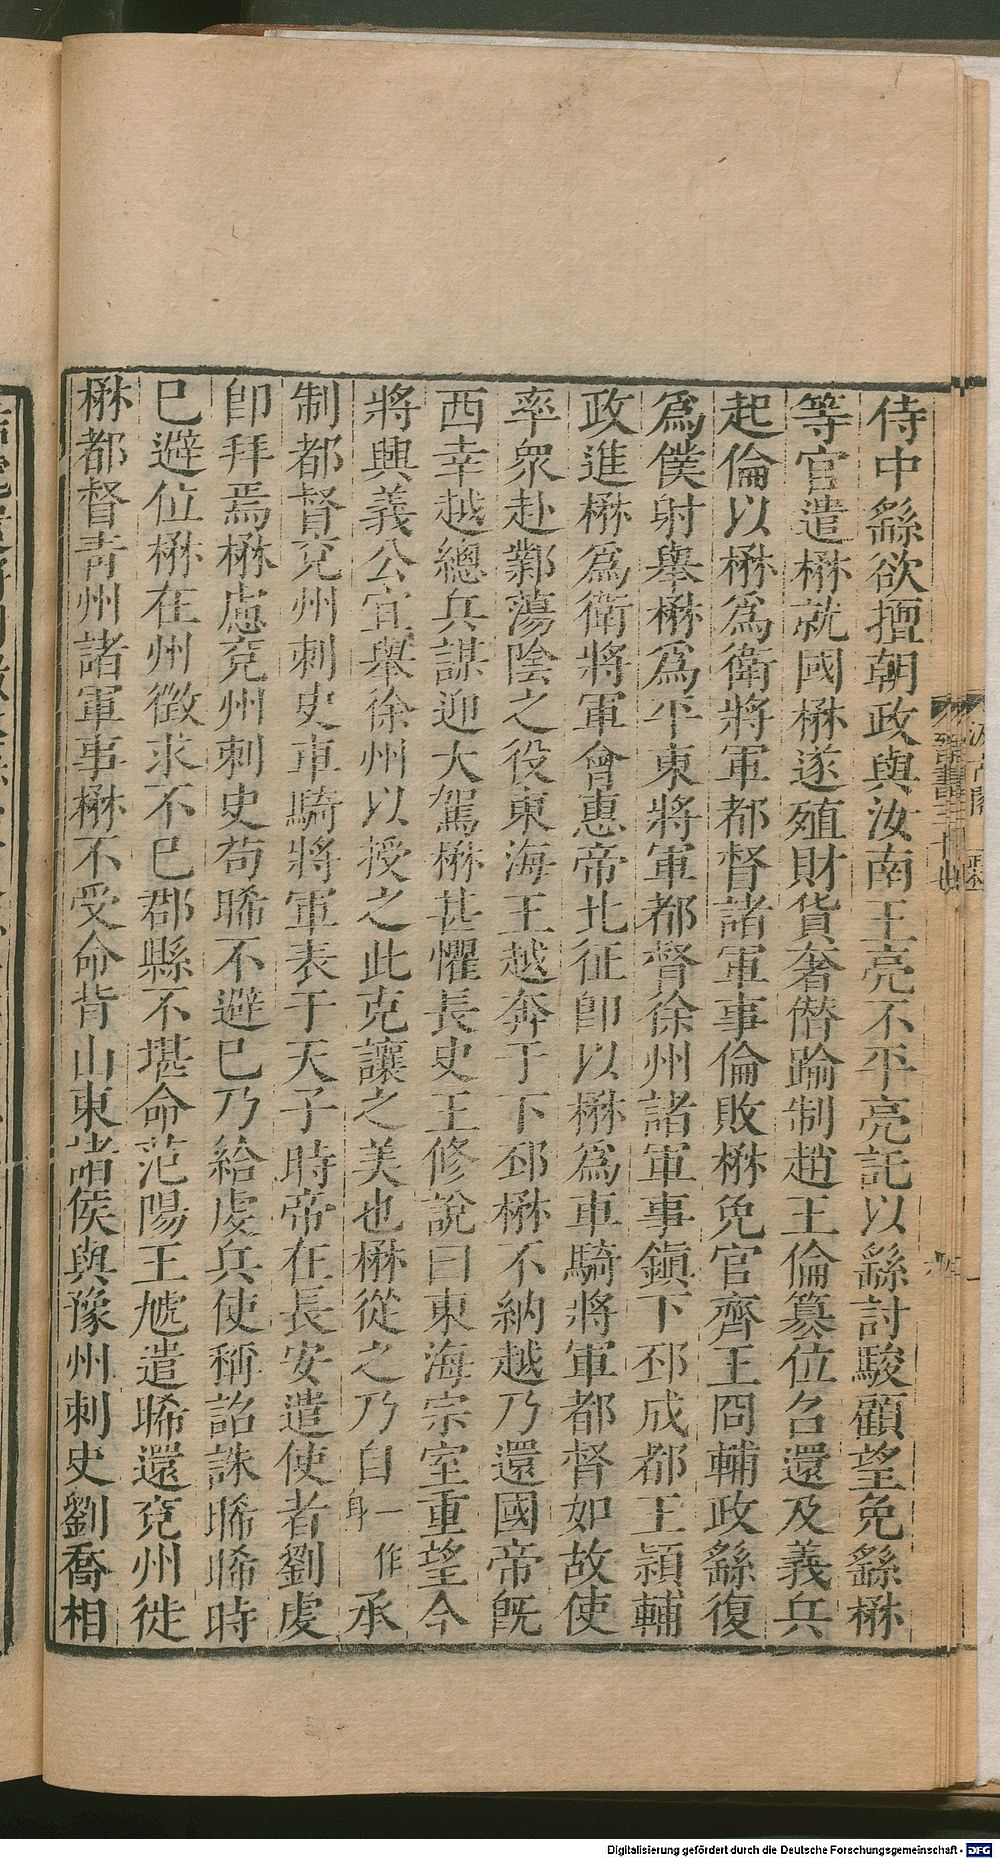 侍中繇欲擅朝政與汝南王亮不平亮託以繇討駿顧望免繇楙
等官遣楙就國楙遂殖財貨奢僭踰制趙王倫篡位召還及義兵
起倫以楙爲衛將軍都督諸軍事倫敗楙免官齊王冏輔政繇復
爲僕射舉楙爲平東將軍都督徐州諸軍事鎮下邳成都王頴輔
政進楙爲衛將軍會惠帝北征即以楙爲車騎將軍都督如故使
率眾赴鄴蕩陰之役東海王越奔于下邳楙不納越乃還國帝旣
西幸越總兵謀迎大駕楙甚懼長史王修說曰東海宗室重望今
將興義公宜舉徐州以授之此克讓之美也楙從之乃自一作身承
制都督兗州刺史車騎將軍表于天子時帝在長安遣使者劉虔
即拜焉楙慮兗州刺史苟晞不避已乃給虔兵使稱詔誅晞晞時
已避位楙在州徵求不已郡縣不堪命范陽王虓遣晞還兗州徙
楙都督青州諸軍事楙不受命背山東諸侯與豫州刺史劉喬相
汲古閣
Digitalisierung gefördert durch die Deutsche Forschungsgemeinschaft - DFG